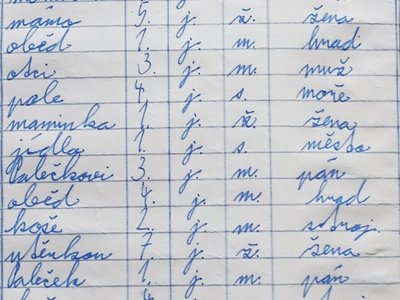 mámo 5. j. ž. žena
oběd 1. j. m. hrad
otci 3. j. m. muž
pole 4. j. s. moře
maminka 1. j. ž. žena
jídlo 1. j. s. město
Palečkovi 3. j. m. pán
oběd 4. j. m. hrad
koše 2. j. m. stroj
utěrkou 7. j. ž. žena
Paleček 1. j. m. pán